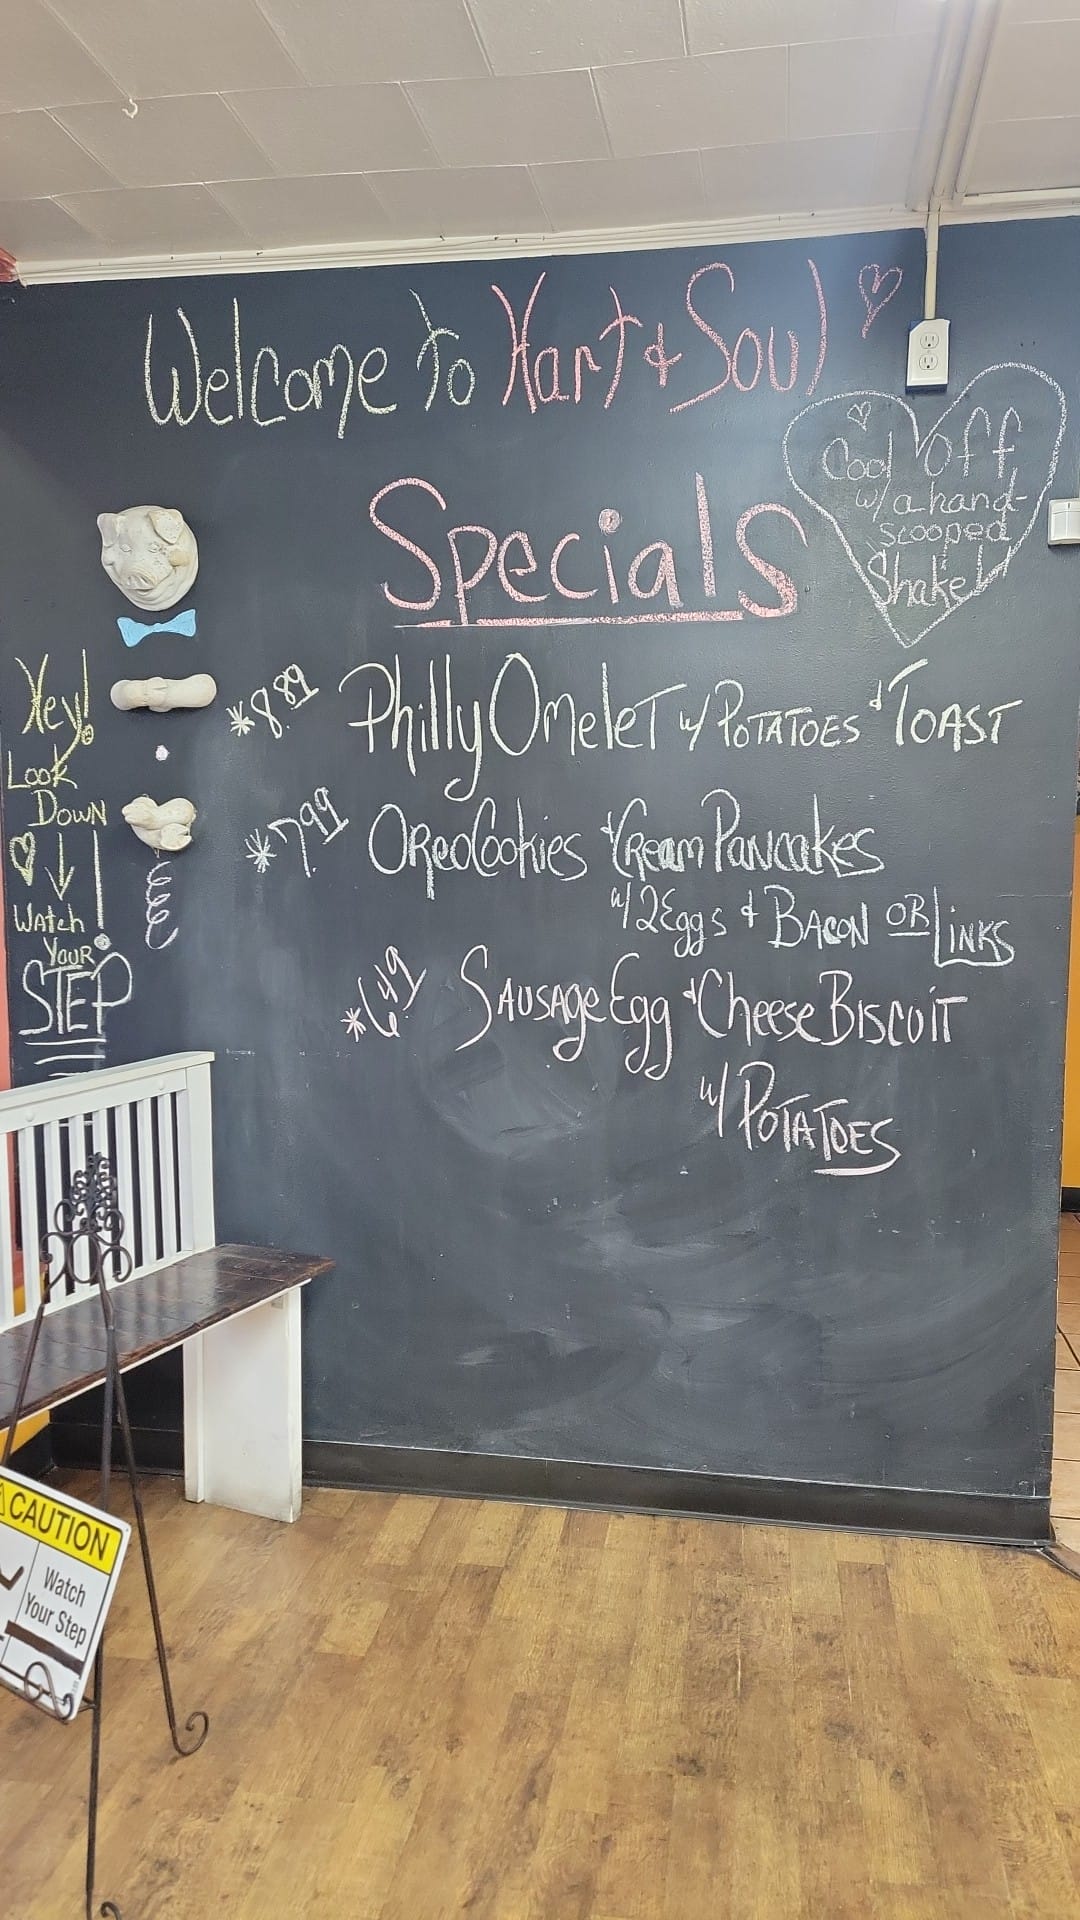 Welcome To Hart & Soul
Cool Off
w/ a hand-
scooped
Shake!
Specials
*8.89 Philly Omelet w/ Potatoes & Toast
*7.99 Oreo Cookies & Cream Pancakes
w/ 2 Eggs & Bacon OR Links
*6.49 Sausage Egg & Cheese Biscuit
w/ Potatoes
Hey!
Look
Down
Watch
Your
STEP
CAUTION
Watch
Your Step